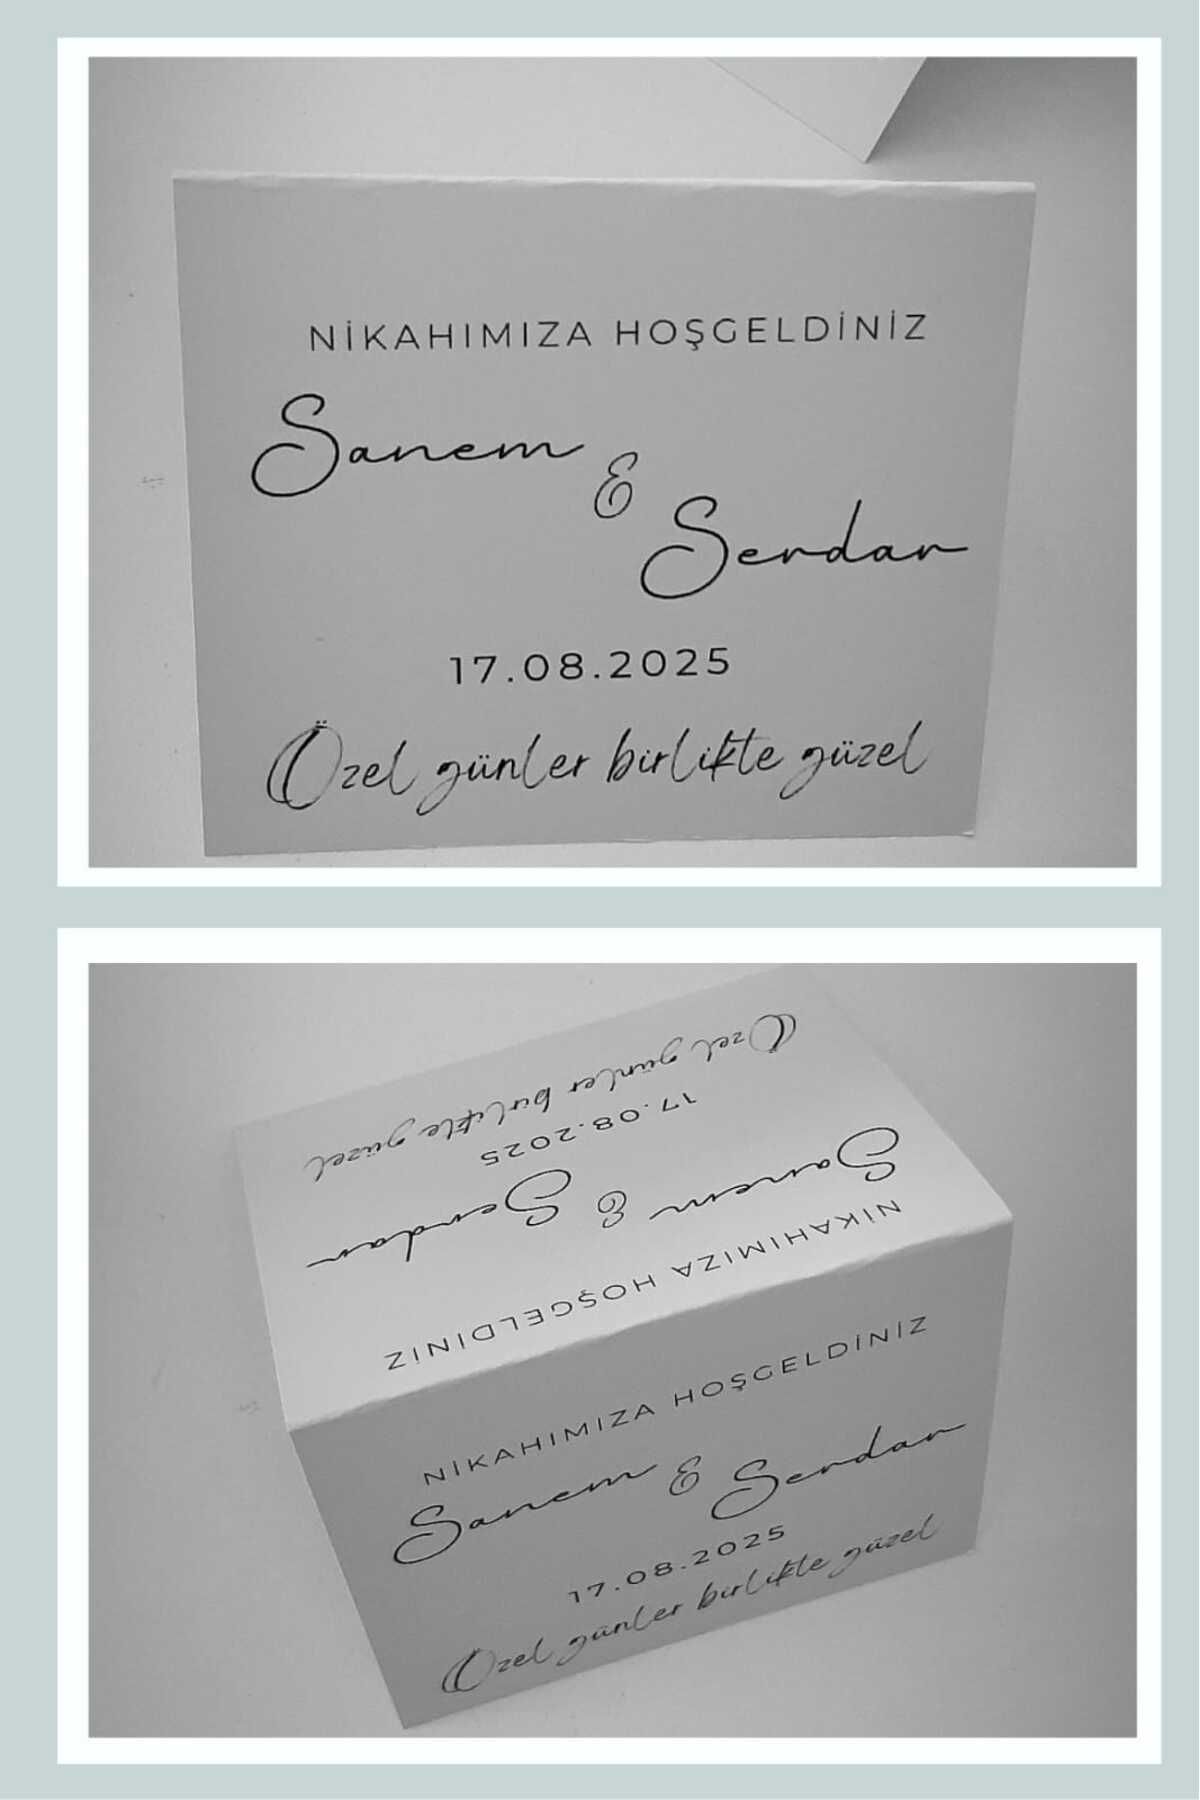 NİKAHIMIZA HOŞGELDİNİZ
Sanem
&
Serdar
17.08.2025
Özel günler birlikte güzel
NİKAHIMIZA HOŞGELDİNİZ
Sanem & Serdar
17.08.2025
Özel günler birlikte güzel
NİKAHIMIZA HOŞGELDİNİZ
Sanem & Serdar
17.08.2025
Özel günler birlikte güzel